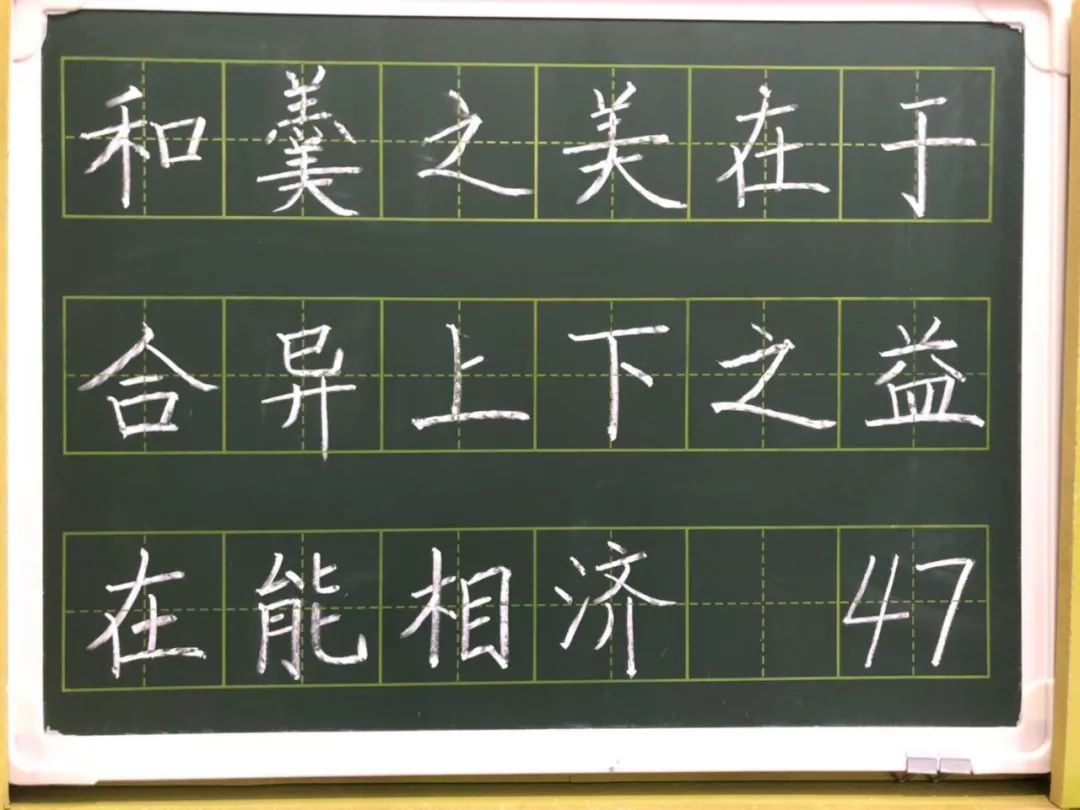 和羹之美在于
合异上下之益
在能相济 47